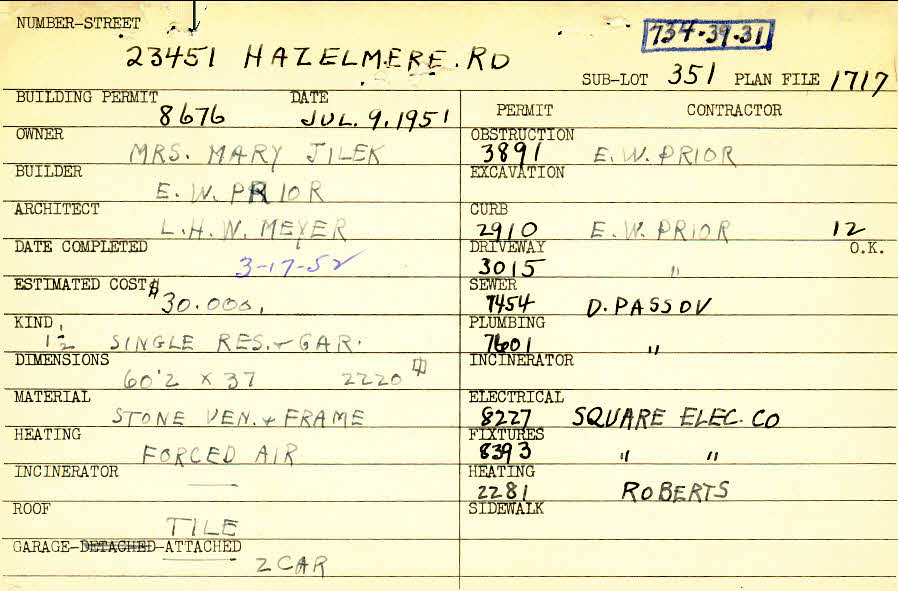 NUMBER-STREET
734-39-31
23451 HAZELMERE. RD
SUB-LOT 351 PLAN FILE 1717
BUILDING PERMIT DATE
8676 JUL. 9, 1951
OWNER
MRS. MARY JILEK
BUILDER
E. W. PRIOR
ARCHITECT
L.H.W. MEYER
DATE COMPLETED
3-17-52
ESTIMATED COST $
30.000,
KIND
1½ SINGLE RES. + GAR.
DIMENSIONS
60'2 x 37 2220
MATERIAL
STONE VEN. + FRAME
HEATING
FORCED AIR
INCINERATOR
—
ROOF
TILE
GARAGE-DETACHED-ATTACHED
2 CAR
PERMIT CONTRACTOR
OBSTRUCTION
3891 E. W. PRIOR
EXCAVATION
CURB
2910 E. W. PRIOR 12
DRIVEWAY O.K.
3015 "
SEWER
7454 D. PASSOV
PLUMBING
7601 "
INCINERATOR
ELECTRICAL
8227 SQUARE ELEC. CO
FIXTURES
8393 " "
HEATING
2281 ROBERTS
SIDEWALK